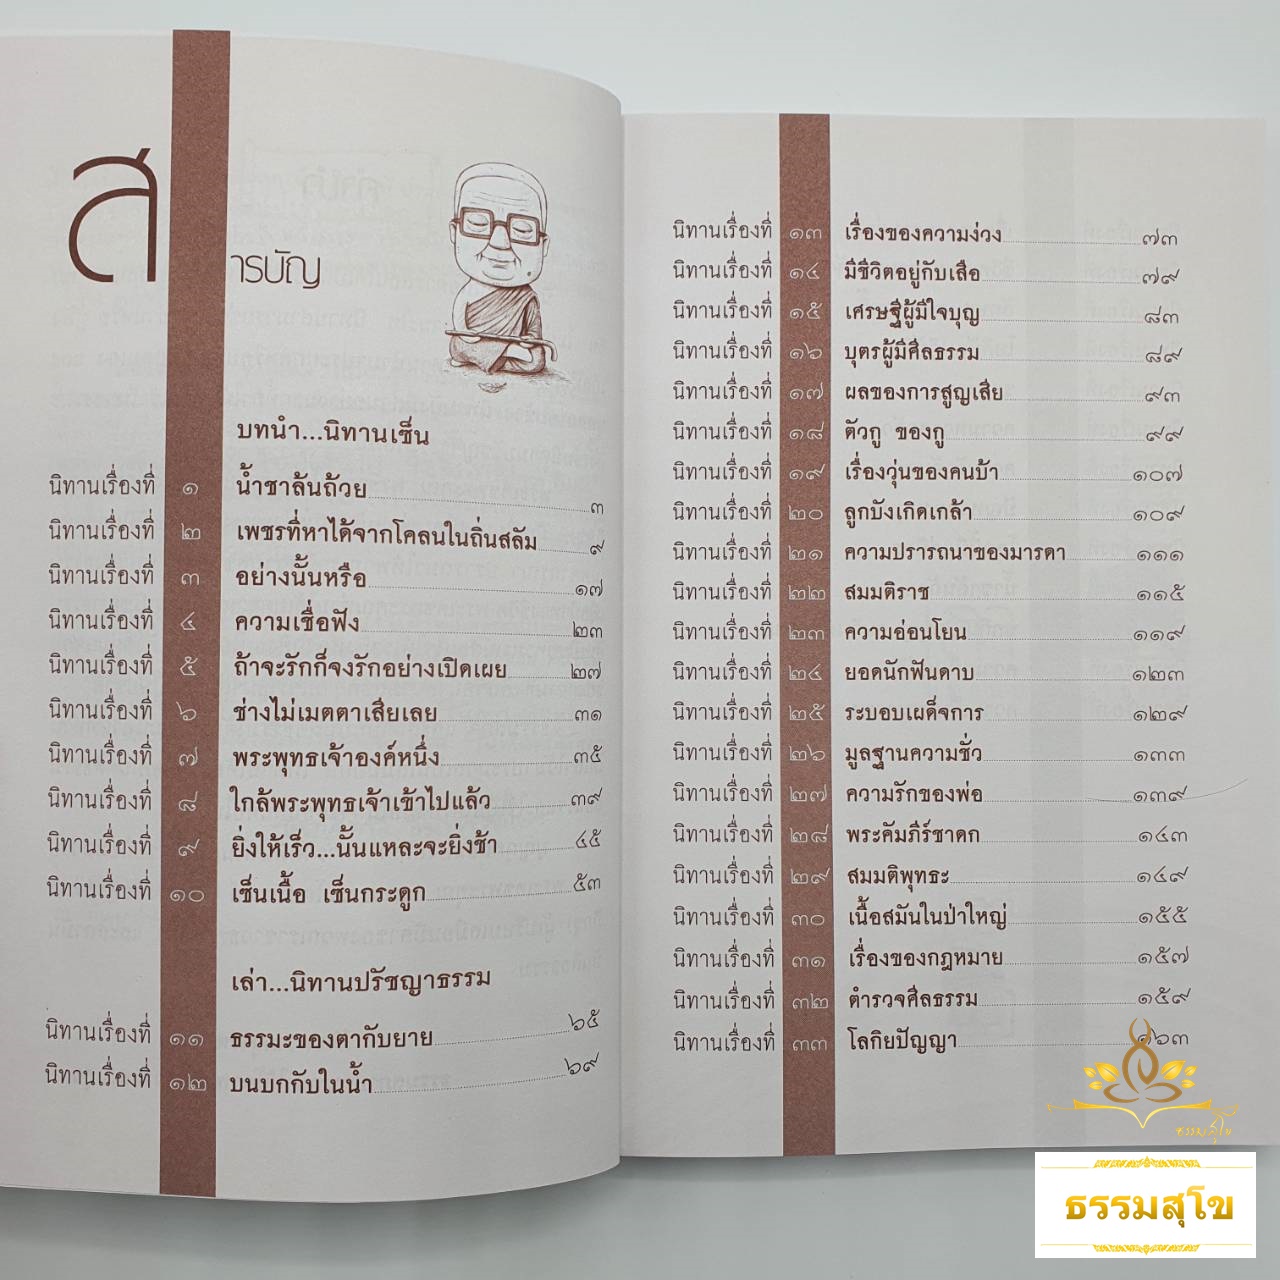 สารบัญ
บทนำ...นิทานเซ็น
นิทานเรื่องที่ ๑ น้ำชาล้นถ้วย ๓
นิทานเรื่องที่ ๒ เพชรที่หาได้จากโคลนในถิ่นสลัม ๙
นิทานเรื่องที่ ๓ อย่างนั้นหรือ ๑๗
นิทานเรื่องที่ ๔ ความเชื่อฟัง ๒๓
นิทานเรื่องที่ ๕ ถ้าจะรักก็จงรักอย่างเปิดเผย ๒๗
นิทานเรื่องที่ ๖ ช่างไม่เมตตาเสียเลย ๓๑
นิทานเรื่องที่ ๗ พระพุทธเจ้าองค์หนึ่ง ๓๕
นิทานเรื่องที่ ๘ ใกล้พระพุทธเจ้าเข้าไปแล้ว ๓๙
นิทานเรื่องที่ ๙ ยิ่งให้เร็ว...นั้นแหละจะยิ่งช้า ๔๕
นิทานเรื่องที่ ๑๐ เซ็นเนื้อ เซ็นกระดูก ๕๓
เล่า...นิทานปรัชญาธรรม
นิทานเรื่องที่ ๑๑ ธรรมะของตากับยาย ๖๕
นิทานเรื่องที่ ๑๒ บนบกกับในน้ำ ๖๙
นิทานเรื่องที่ ๑๓ เรื่องของความง่วง ๗๓
นิทานเรื่องที่ ๑๔ มีชีวิตอยู่กับเสือ ๗๙
นิทานเรื่องที่ ๑๕ เศรษฐีผู้มีใจบุญ ๘๓
นิทานเรื่องที่ ๑๖ บุตรผู้มีศีลธรรม ๘๙
นิทานเรื่องที่ ๑๗ ผลของการสูญเสีย ๙๓
นิทานเรื่องที่ ๑๘ ตัวกู ของกู ๙๙
นิทานเรื่องที่ ๑๙ เรื่องวุ่นของคนบ้า ๑๐๗
นิทานเรื่องที่ ๒๐ ลูกบังเกิดเกล้า ๑๐๙
นิทานเรื่องที่ ๒๑ ความปรารถนาของมารดา ๑๑๑
นิทานเรื่องที่ ๒๒ สมมติราช ๑๑๕
นิทานเรื่องที่ ๒๓ ความอ่อนโยน ๑๑๙
นิทานเรื่องที่ ๒๔ ยอดนักฟันดาบ ๑๒๓
นิทานเรื่องที่ ๒๕ ระบอบเผด็จการ ๑๒๙
นิทานเรื่องที่ ๒๖ มูลฐานความชั่ว ๑๓๓
นิทานเรื่องที่ ๒๗ ความรักของพ่อ ๑๓๙
นิทานเรื่องที่ ๒๘ พระคัมภีร์ชาดก ๑๔๓
นิทานเรื่องที่ ๒๙ สมมติพุทธะ ๑๔๙
นิทานเรื่องที่ ๓๐ เนื้อสมันในป่าใหญ่ ๑๕๕
นิทานเรื่องที่ ๓๑ เรื่องของกฎหมาย ๑๕๗
นิทานเรื่องที่ ๓๒ ตำรวจศีลธรรม ๑๕๙
นิทานเรื่องที่ ๓๓ โลกิยปัญญา ๑๖๓
ธรรมสุโข
ธรรมสุโข